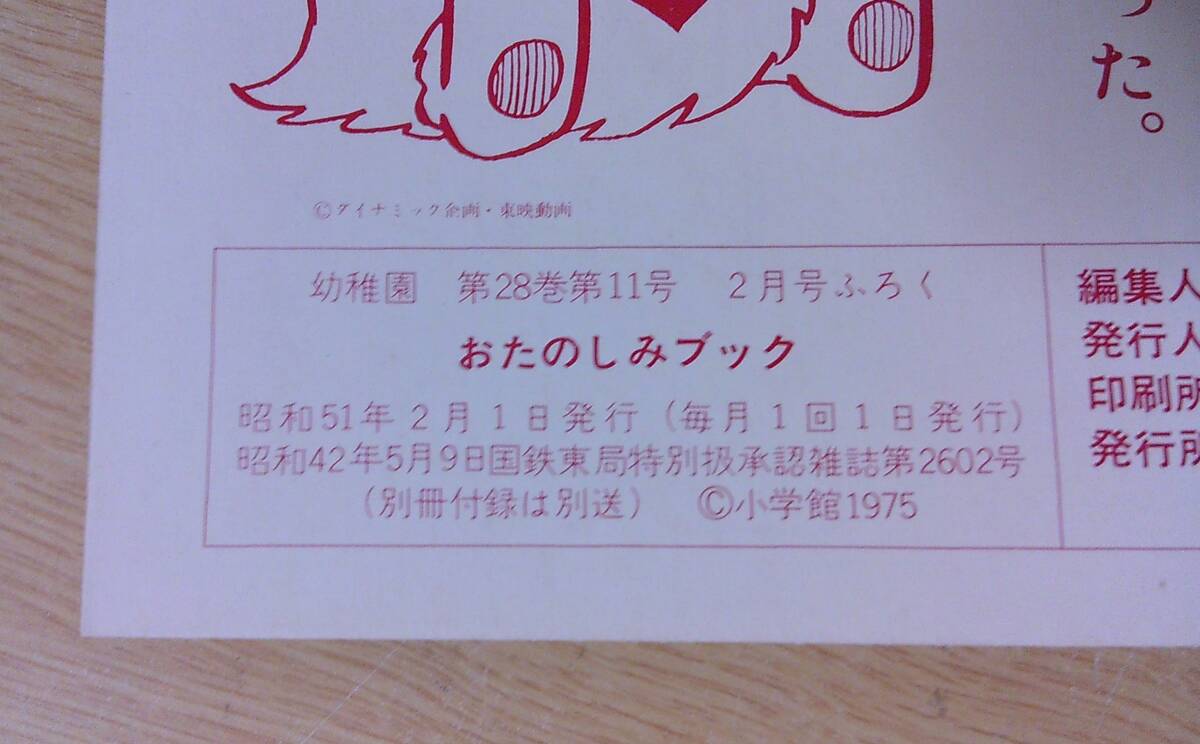 った。
©ダイナミック企画・東映動画
幼稚園 第28巻第11号 2月号ふろく
おたのしみブック
昭和51年2月1日発行（毎月1回1日発行）
昭和42年5月9日国鉄東局特別扱承認雑誌第2602号
（別冊付録は別送） ©小学館1975
編集人
発行人
印刷所
発行所